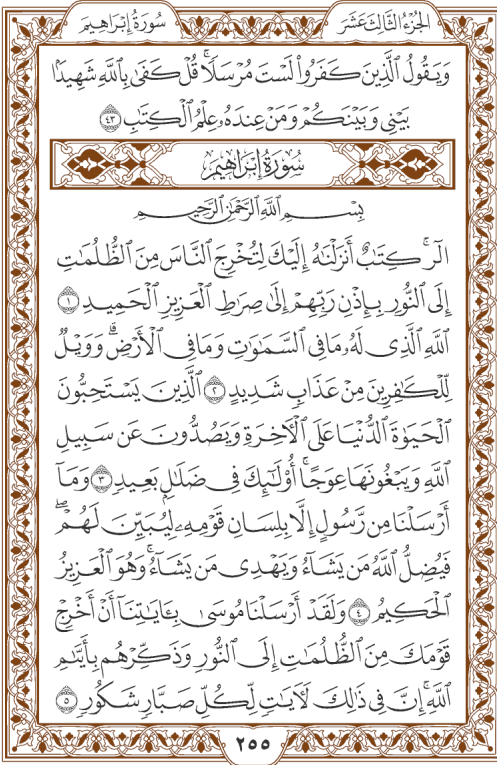 الجُزْءُ الثَّالِثَ عَشَرَ
سُورَةُ إِبْرَاهِيم
وَيَقُولُ ٱلَّذِينَ كَفَرُواْ لَسۡتَ مُرۡسَلٗاۚ قُلۡ كَفَىٰ بِٱللَّهِ شَهِيدَۢا
بَيۡنِي وَبَيۡنَكُمۡ وَمَنۡ عِندَهُۥ عِلۡمُ ٱلۡكِتَٰبِ ٤٣
سُورَةُ إِبْرَاهِيم
بِسۡمِ ٱللَّهِ ٱلرَّحۡمَٰنِ ٱلرَّحِيمِ
الٓرۚ كِتَٰبٌ أَنزَلۡنَٰهُ إِلَيۡكَ لِتُخۡرِجَ ٱلنَّاسَ مِنَ ٱلظُّلُمَٰتِ
إِلَى ٱلنُّورِ بِإِذۡنِ رَبِّهِمۡ إِلَىٰ صِرَٰطِ ٱلۡعَزِيزِ ٱلۡحَمِيدِ ١
ٱللَّهِ ٱلَّذِي لَهُۥ مَا فِي ٱلسَّمَٰوَٰتِ وَمَا فِي ٱلۡأَرۡضِۗ وَوَيۡلٞ
لِّلۡكَٰفِرِينَ مِنۡ عَذَابٖ شَدِيدٍ ٢ ٱلَّذِينَ يَسۡتَحِبُّونَ
ٱلۡحَيَوٰةَ ٱلدُّنۡيَا عَلَى ٱلۡأٓخِرَةِ وَيَصُدُّونَ عَن سَبِيلِ
ٱللَّهِ وَيَبۡغُونَهَا عِوَجًاۚ أُوْلَٰٓئِكَ فِي ضَلَٰلِۭ بَعِيدٖ ٣ وَمَآ
أَرۡسَلۡنَا مِن رَّسُولٍ إِلَّا بِلِسَانِ قَوۡمِهِۦ لِيُبَيِّنَ لَهُمۡۖ
فَيُضِلُّ ٱللَّهُ مَن يَشَآءُ وَيَهۡدِي مَن يَشَآءُۚ وَهُوَ ٱلۡعَزِيزُ
ٱلۡحَكِيمُ ٤ وَلَقَدۡ أَرۡسَلۡنَا مُوسَىٰ بِـَٔايَٰتِنَآ أَنۡ أَخۡرِجۡ
قَوۡمَكَ مِنَ ٱلظُّلُمَٰتِ إِلَى ٱلنُّورِ وَذَكِّرۡهُم بِأَيَّىٰمِ
ٱللَّهِۚ إِنَّ فِي ذَٰلِكَ لَأٓيَٰتٖ لِّكُلِّ صَبَّارٖ شَكُورٖ ٥
٢٥٥